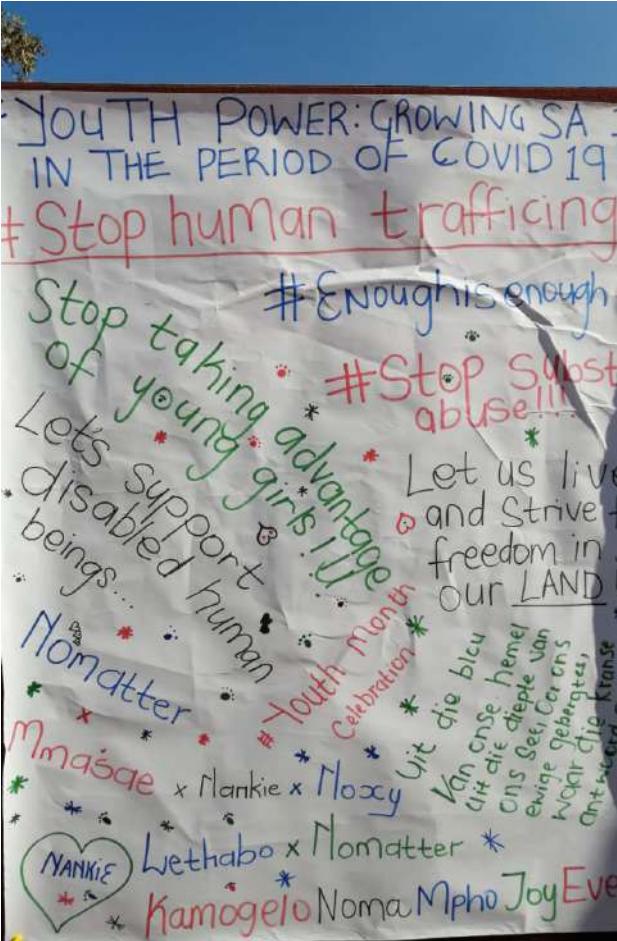 YOUTH POWER: GROWING SA
IN THE PERIOD OF COVID 19
#Stop human trafficing
#Enoughisenough
Stop taking advantage
of young girls!!!
#Stop Subst
abuse!!!...
Let's support
disabled human
beings...
Let us live
and Strive
freedom in
our LAND
Nomatter
# Youth Month
Celebration
Uit die bleu
Van onse hemel
Uit die diepte van
ons see, Oor ons
ewige gebergtes,
waar die kranse
antwoord
Mmasae x Nankie x Noxy
NANKIE
Lethabo x Nomatter
Kamogelo Noma Mpho Joy Eve